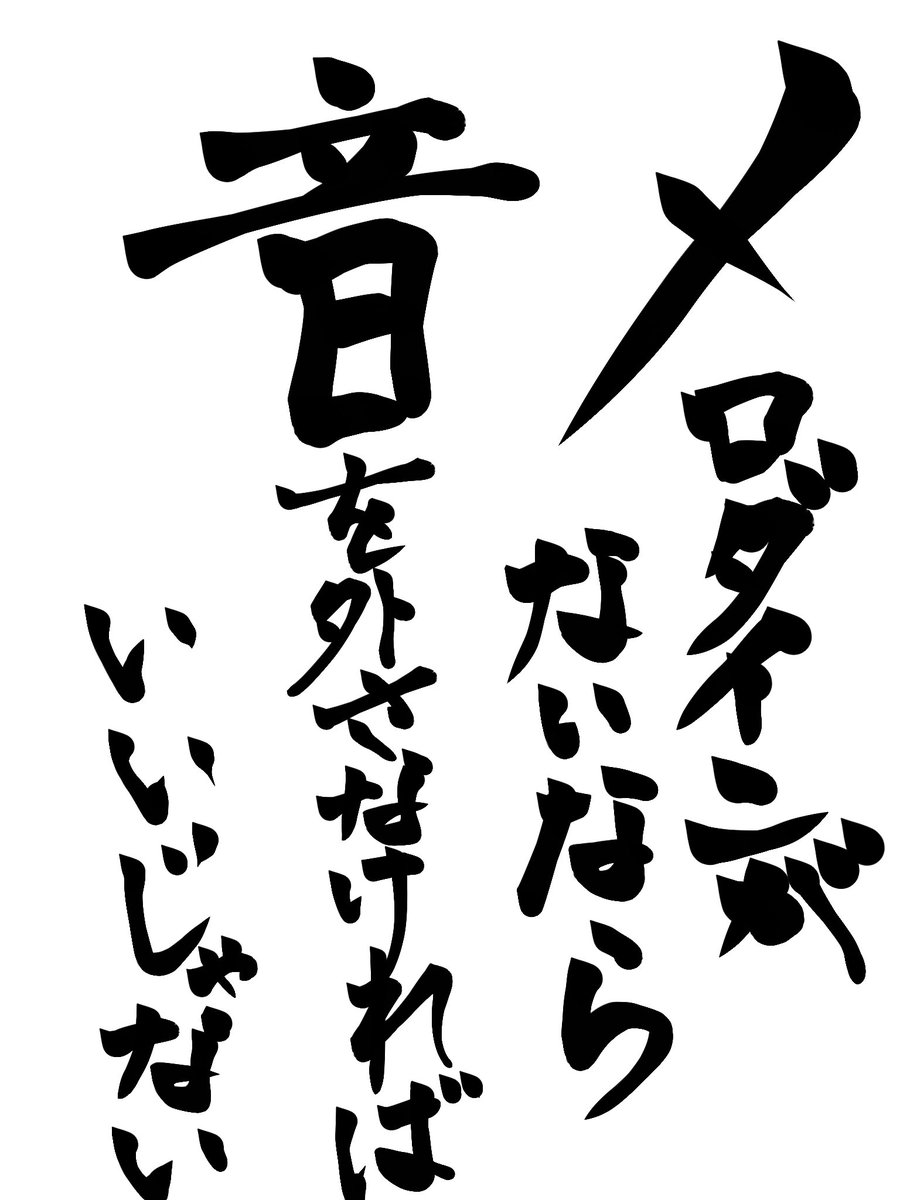 メロダインが
ないなら
音を外さなければ
いいじゃない